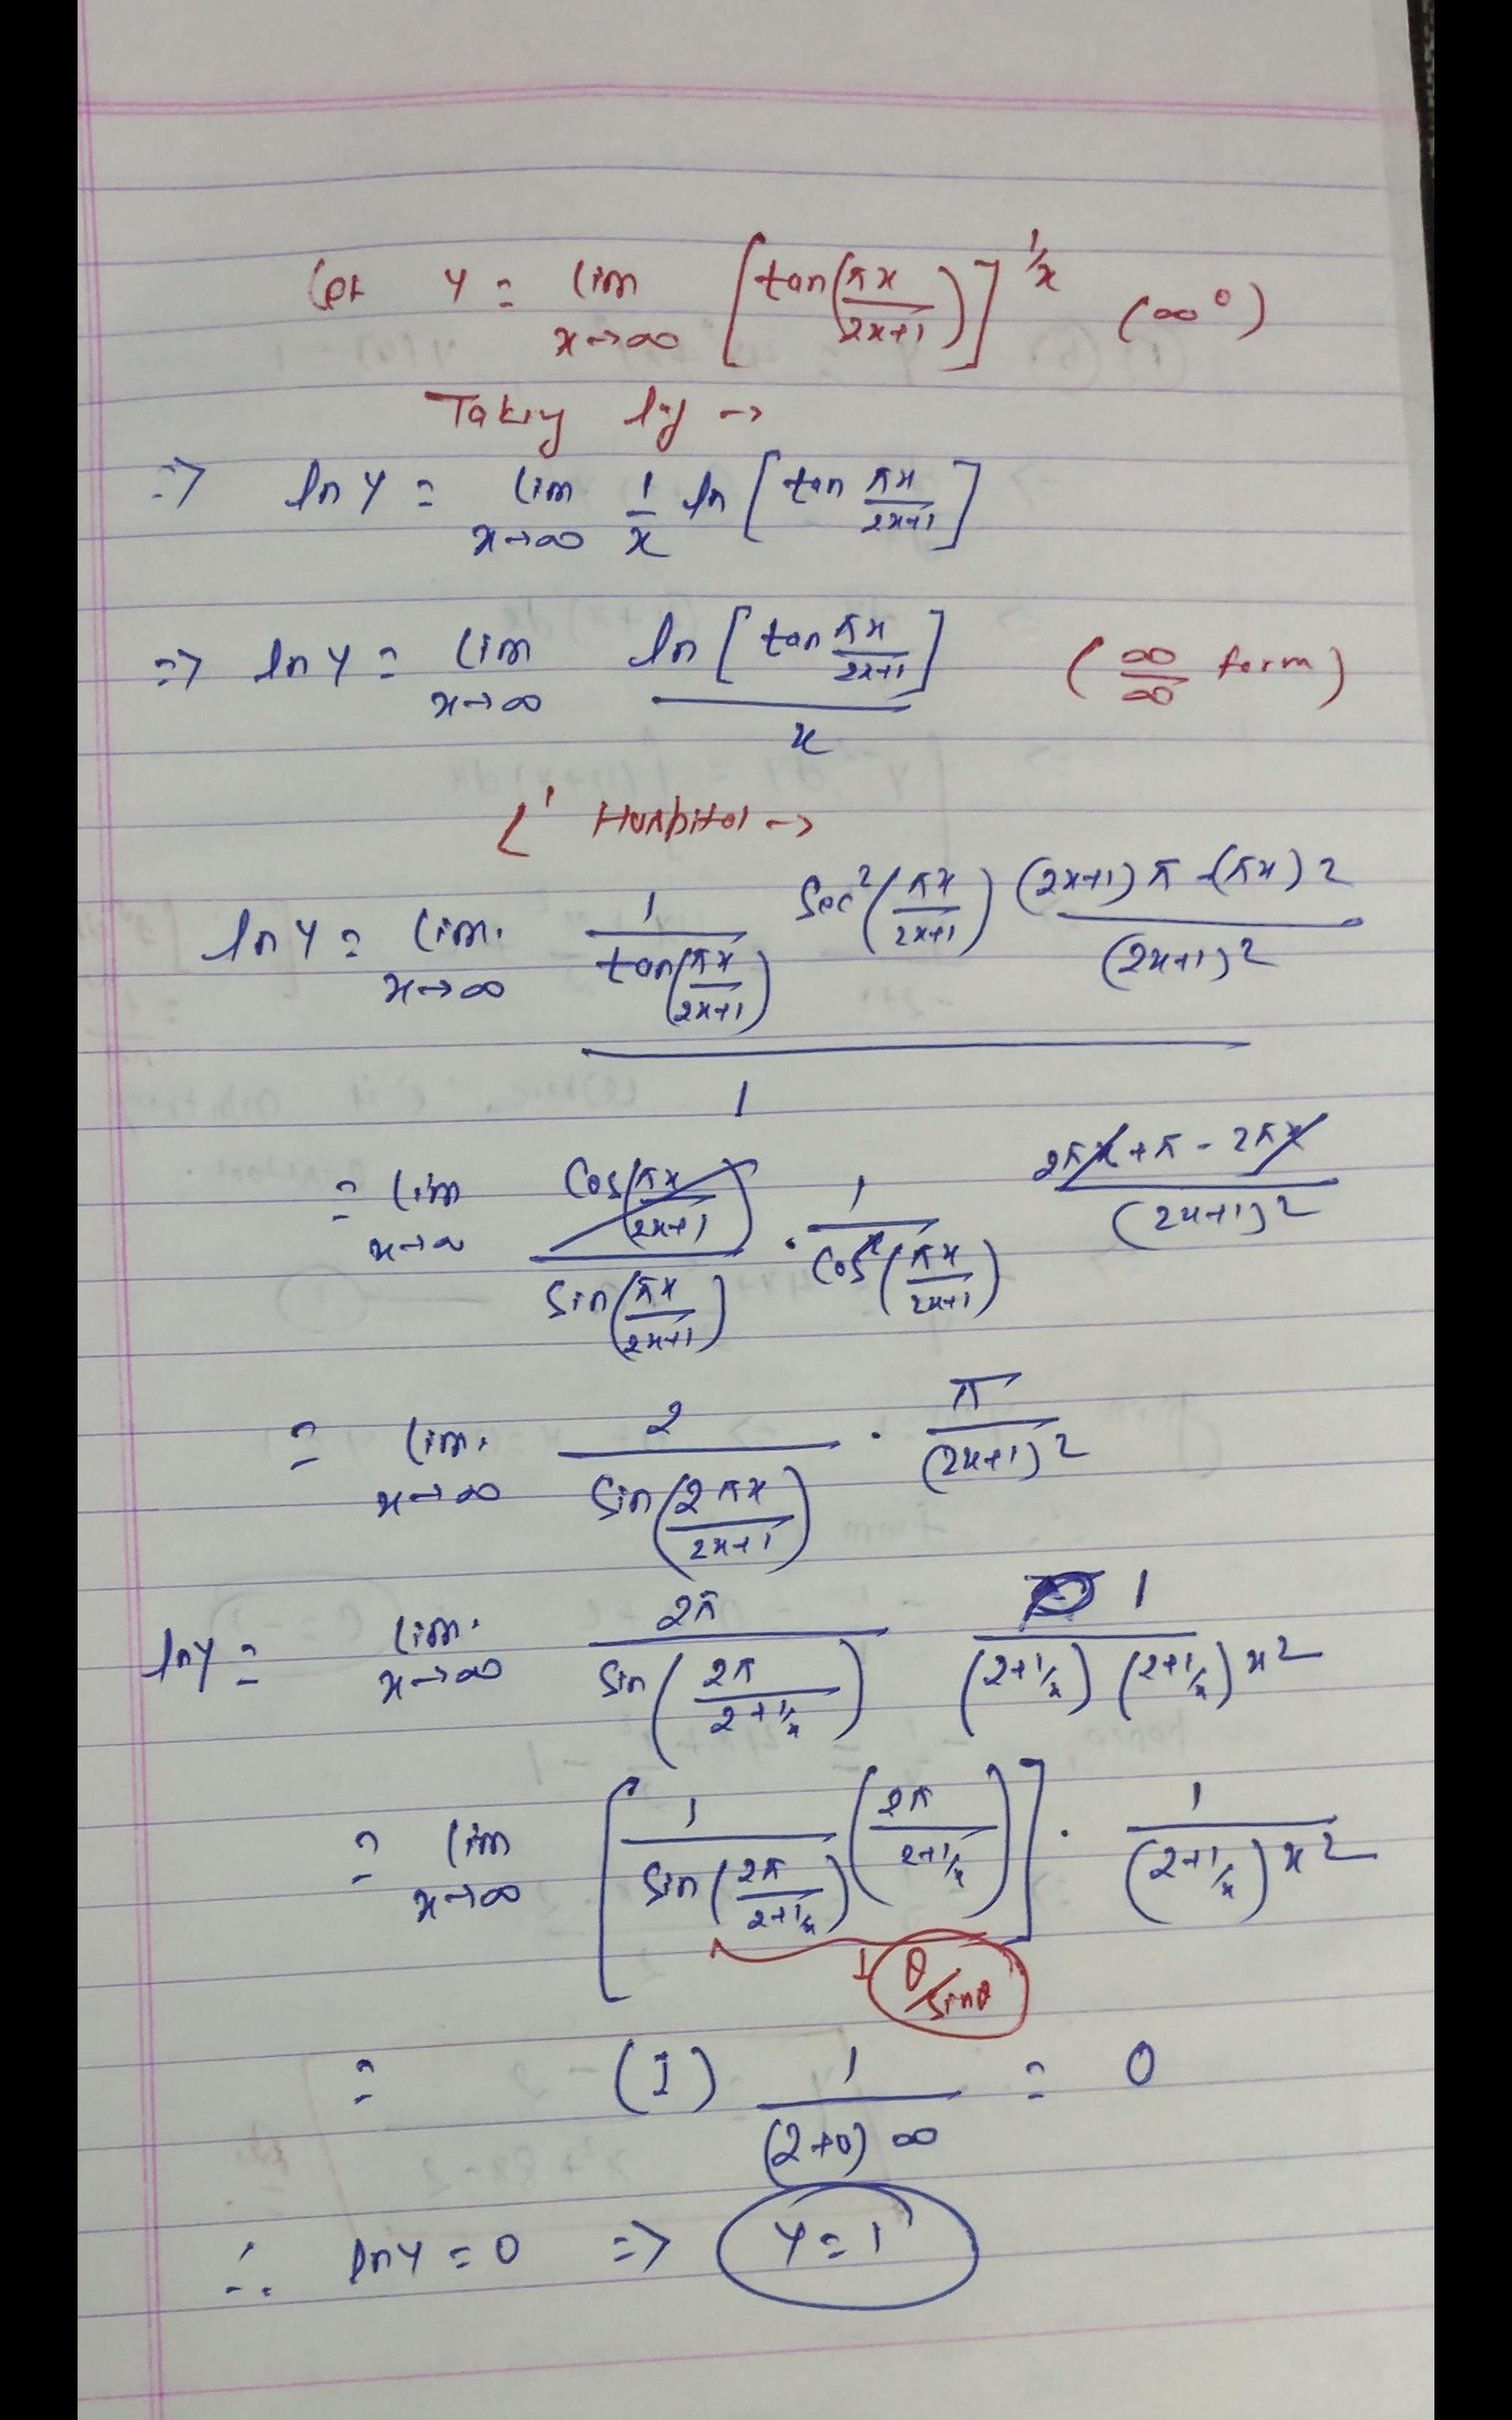 Let Y = lim x→∞ [tan(πx/2x+1)]^1/x (∞⁰)
Taking lg →
⇒ ln Y = lim x→∞ 1/x ln [tan πx/2x+1]
⇒ ln Y = lim x→∞ ln [tan πx/2x+1] / x (∞/∞ form)
L' Hospital →
ln Y = lim. x→∞ 1/tan(πx/2x+1) sec²(πx/2x+1) (2x+1)π - (πx)2 / (2x+1)² / 1
= lim x→∞ cos(πx/2x+1) / sin(πx/2x+1) . 1/cos²(πx/2x+1) 2πx + π - 2πx / (2x+1)²
= lim. x→∞ 2/sin(2πx/2x+1) . π/(2x+1)²
ln Y = lim. x→∞ 2π/sin(2π/2+1/x) 1/(2+1/x)(2+1/x)x²
= lim x→∞ [1/sin(2π/2+1/x) (2π/2+1/x)] . 1/(2+1/x)x²
1 θ/sinθ
= (1) 1/(2+0)∞ = 0
∴ ln Y = 0 ⇒ Y = 1